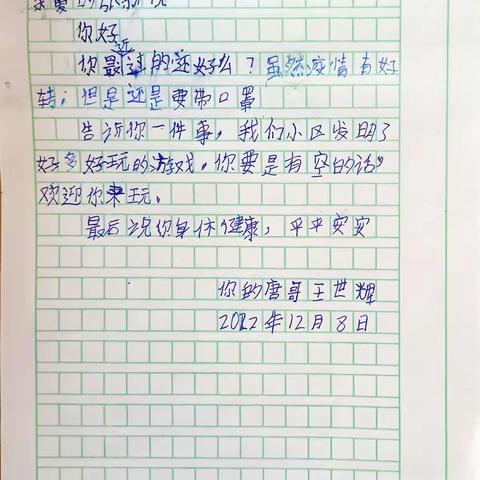 亲爱的
你好
你最近过的还好么？虽然疫情有好
转，但是还是要带口罩
告诉你一件事，我们小区发明了
好多好玩的游戏，你要是有空的话，
欢迎你来玩。
最后祝你身体健康，平平安安
你的唐哥王世辉
2022年12月8日